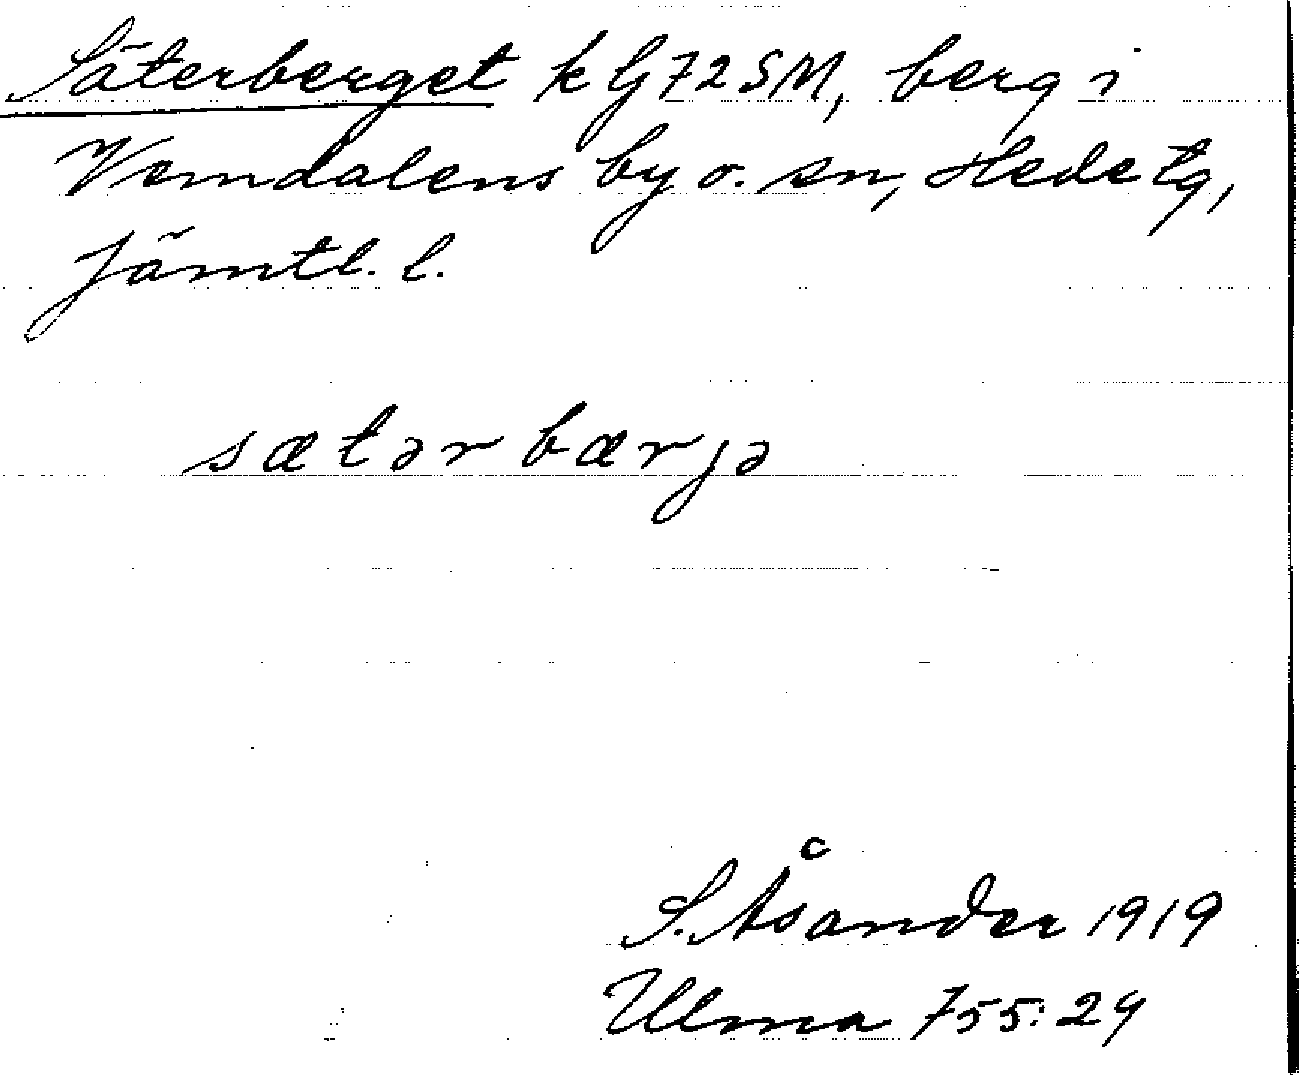 Säterberget k G 72 SM, berg i
Vemdalens by o. sn, Hede tg,
Jämtl. l.
sætərbærjə
S. Åsander 1919
Ulma 755:24